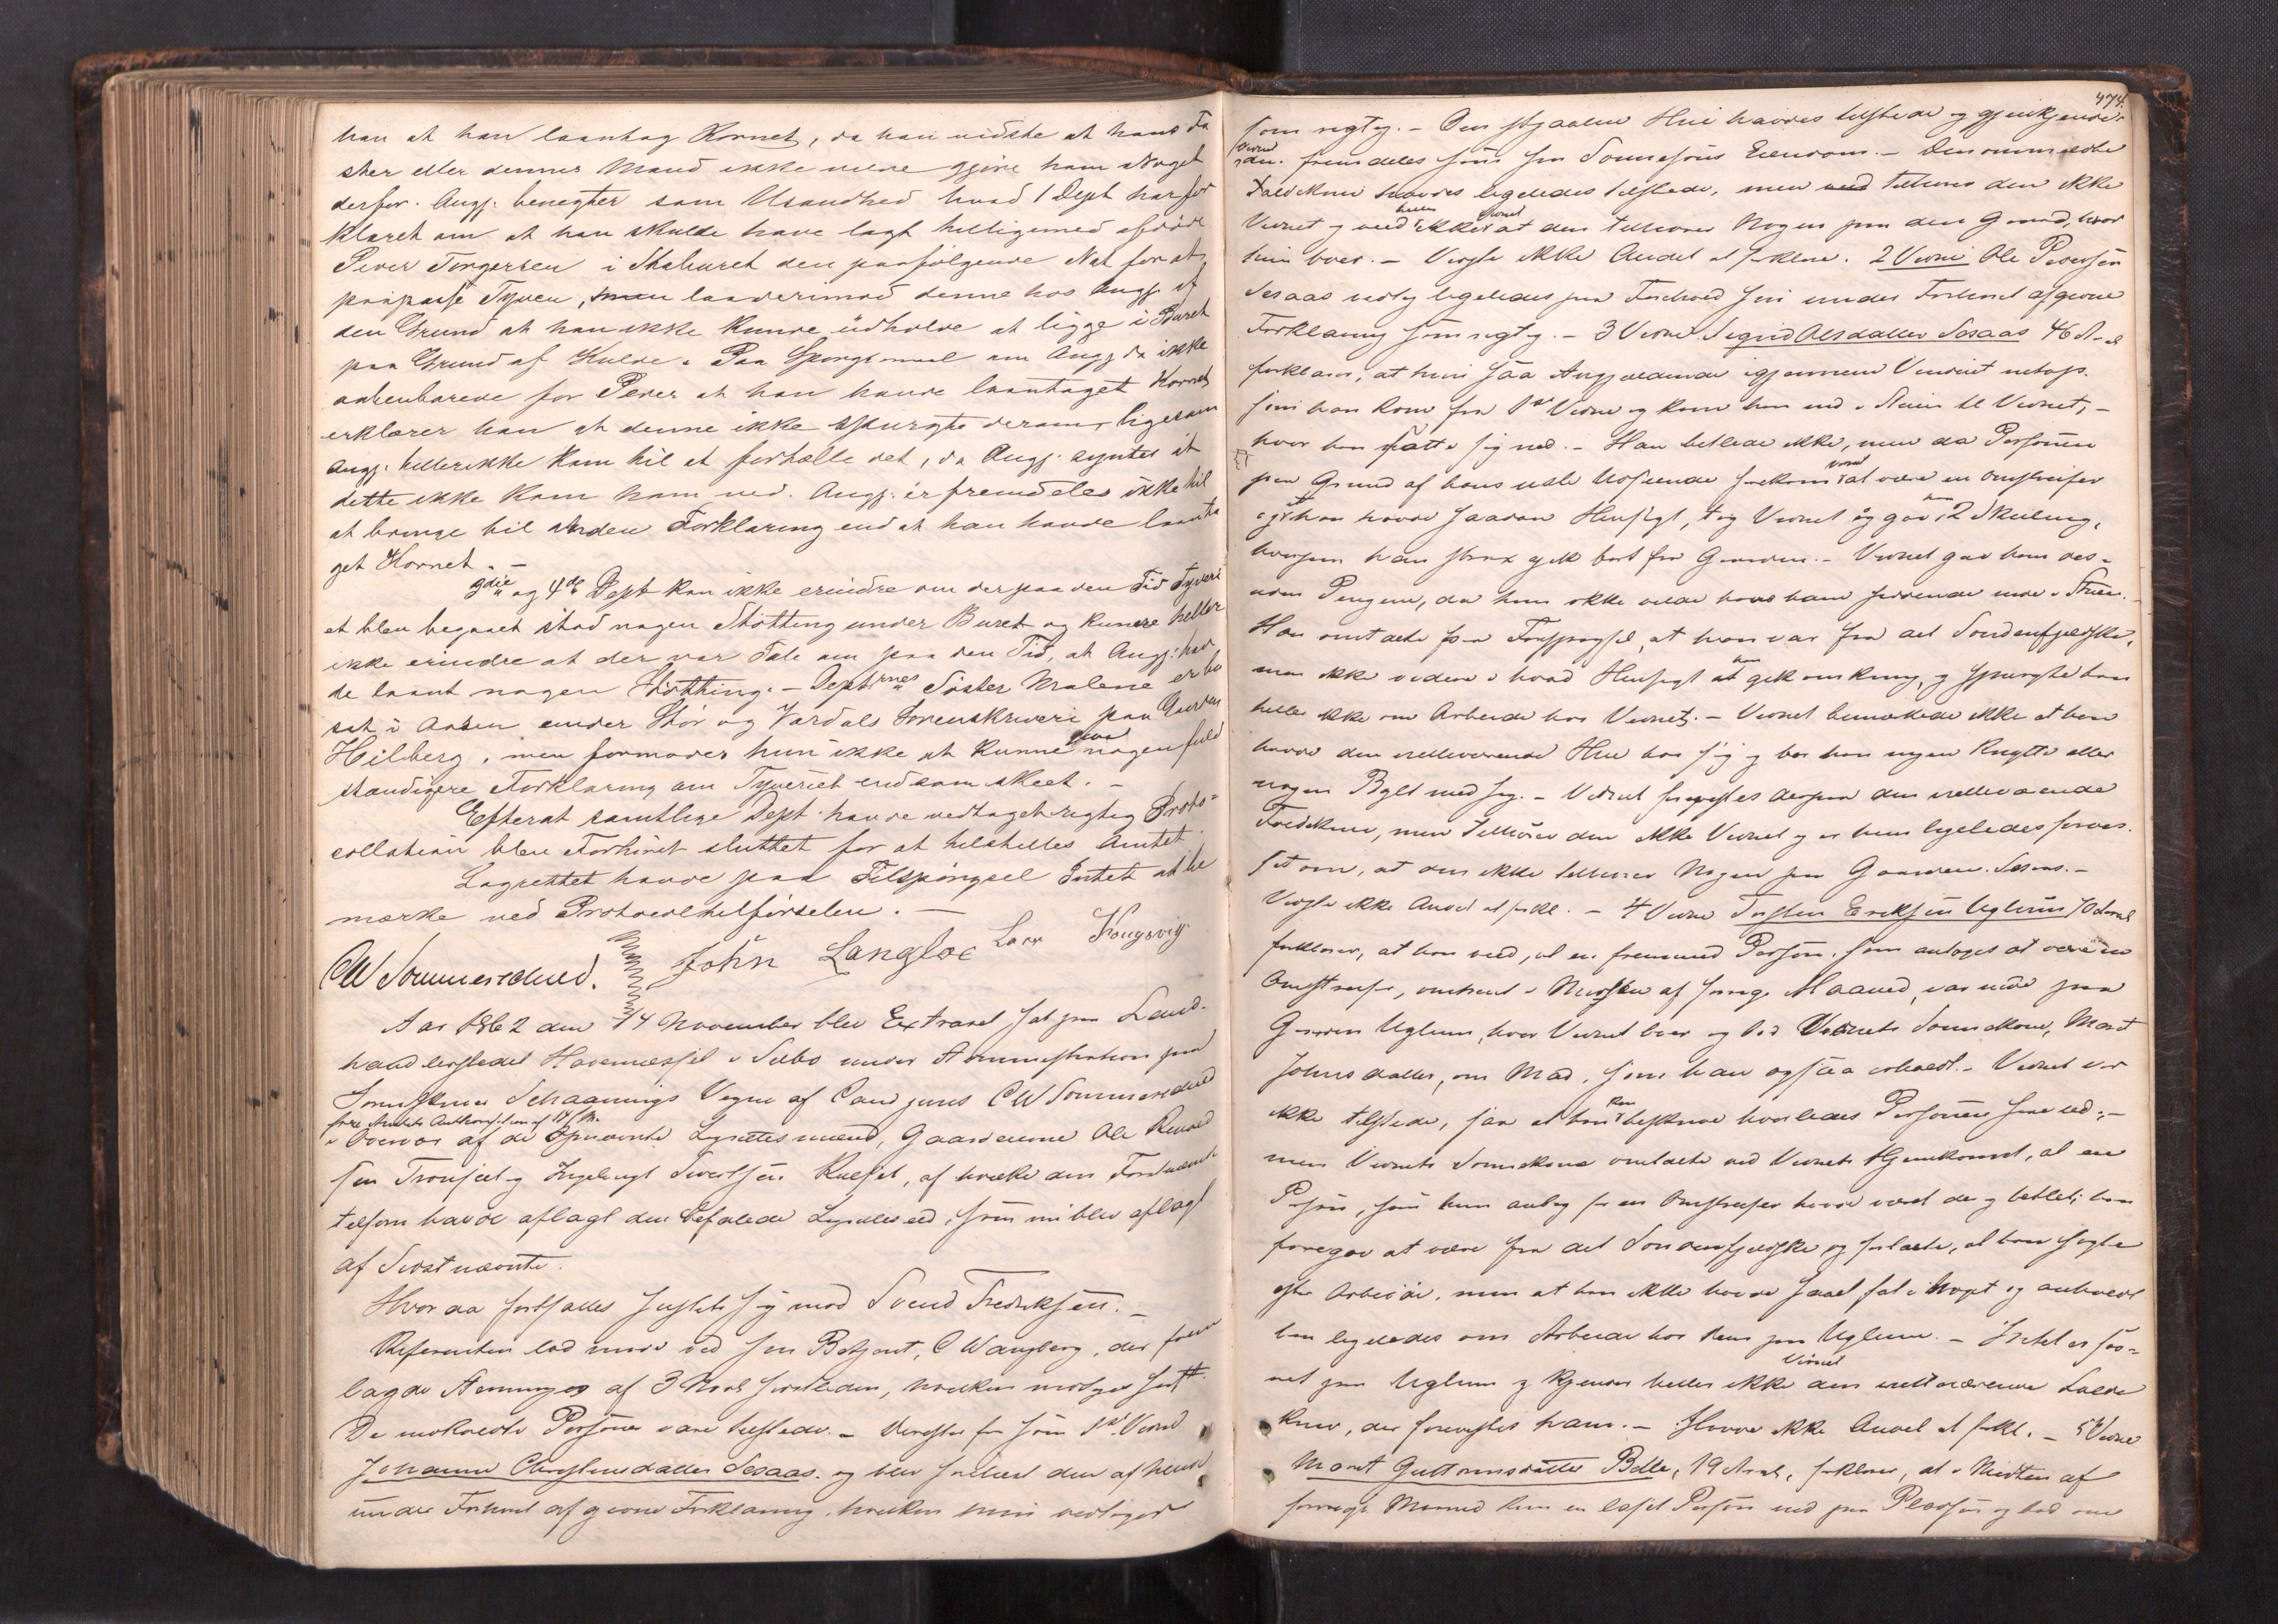 han at han laantog Kornet, da han vidste at hans Fa
ster eller dennes Mand ikke vilde gjøre ham Noget
derfor. Angj. benegter som Usandhed hvad 1 Dept har for
klaret om at han skulde have lagt tilligemed afdøde
Peder Torgersen i Staburet den paafølgende Nat for at
paapasse Tyven, men laa derimod denne hos Angj. af
den Grund at han ikke kunde udholde at ligge i Buret
paa Grund af Kulde. Paa Spørgsmaal om Angj. da ikke
aabenbarede for Peder at han havde laantaget Kornet
erklærer han at denne ikke spurgte derom, ligesom
Angj. heller ikke kom til at fortælle det, da Angj. syntes at
dette ikke kom ham ved. Angj. er fremdeles ikke til
at bringe til anden Forklaring end at han havde laanta
get Kornet. —
3die og 4de Dept kan ikke erindre om der paa den Tid Tyveri
et blev begaaet stod nogen Støtting under Buret og kunde heller
ikke erindre at der var Tale om paa den Tid, at Angj. hav
de laant nogen Støtting. — Deptrnes Søster Malene er bo
sat i Aasen under Stør og Værdals Sorenskriveri paa Gaarden
Hilberg, men formoder hun ikke at kunne give nogen fuld
stændigere Forklaring om Tyveriet end som skeet. —
Efterat samtlige Dept. havde vedtaget rigtig Proto-
collation blev Forhøret sluttet for at tilstilles Amtet.
Lagrettet havde paa Tilspørgsel Intet at be
mærke ved Protocoltilførselen. —
CW Sommerschield. John Langloe Lars Kongsvig
Aar 1862 den 14 November blev Extraret sat paa Land-
handlerstedet Havernæsset i Selbo under Administration paa
Sorenskriver Schaanings Vegne af Cand juris CW Sommerschield
efter Amtets Authorisation af 14/
i Overvær af de opnævnte Lagrettesmænd, Gaardeierne Ole
sen og Ingebrigt Sivertsen, af hvilke den Førstnævnte
tilforn havde aflagt den befalede Lagrettesed, som nu blev aflagt
af Sidstnævnte.
Hvor da foretoges Justits Sag mod Svend Fredriksen. —
Referenten lod møde ved sin Betjent, C Wangberg, der frem
lagde af 3 sidstleden, hvilken modtoges sub
De indkaldte Personer vare tilstede. — Vorder for som 1ste Vidne
Johanna Christensdatter Sesaas. og blev forelæst den af hende
under Forhøret afgivne Forklaring, hvilken hun vedtoges
474.
som rigtig. — Den stjaalne Hue havdes tilstede og gjenkjender
Vidnet den fremdeles som sin Sønnesøns Eiendom. — Den ommeldte
havdes ligeledes tilstede, men tilhører den ikke
Vidnet og veed heller ikke Vidnet at den tilhører Nogen paa den Gaard, hvor
hun boer. — Vidste ikke Andet at forklare. 2 Vidne Ole Pedersen
Sesaas vedtog ligeledes paa Forehold sin under Forhøret afgivne
Forklaring som rigtig. — 3 Vidne Sigrid Olsdatter Sesaas 46 Aar
forklarer, at hun saa Angjældende igjennem Vinduet netop
som han kom fra 1ste Vidne og kom han ind i Stuen til Vidnet, —
hvor han satte sig ned. — Han betlede ikke, men da Personen
paa Grund af hans usle Udseende forekom Vidnet at være en Omstreifer
og at han havde saadan Hensigt, tog Vidnet og gav ham 2 Skilling,
hvorpaa han strax gik bort fra Gaarden. — Vidnet gav ham des-
uden Pengene, da hun ikke vilde have ham siddende inde i Stuen. —
Han omtalte paa Forespørgsel, at han var fra det Søndenfjeldske,
men ikke videre i hvad Hensigt han gik omkring, og spurgte han
heller ikke om Arbeide hos Vidnet. — Vidnet bemærkede ikke at han
havde den vedkommende Hue hos sig og bar han ingen Knytte eller
nogen Bylt med sig. — Vidnet forevistes derpaa den
men tilhører den ikke Vidnet og er hun ligeledes forvis-
set om, at den ikke tilhører Nogen paa Gaarden Sesaas. —
Vidste ikke Andet at forkl. — 4 Vidne Torsten Eriksen Uglum 70 Aar
forklarer, at han veed, at en fremmed Person, som antoges at være en
Omstreifer, omtrent i Midten af forrige Maaned, var inde paa
Gaarden Uglum, hvor Vidnet boer og bad Vidnets Sønnekone, Marit
Johnsdatter, om Mad, som han ogsaa erholdt. — Vidnet var
ikke tilstede, saa at han kan beskrive hvorledes Personen saae ud; —
men Vidnets Sønnekone omtalte ved Vidnets Hjemkomst, at en
Person, som hun antog for en Omstreifer havde været der og betlet; han
foregav at være fra det Søndenfjeldske og fortalte, at han søgte
efter Arbeide, men at han ikke havde faaet fat i Noget og anholdt
han ligeledes om Arbeide hos dem paa Uglum. — Intet er sav-
net paa Uglum og kjender Vidnet heller ikke den vedkommende
, der forevistes ham. — Havde ikke Andet at forkl. — 5 Vidne
Marit Guttormsdatter Belle, 19 Aar, forklarer, at i Midten af
forrige Maaned kom en Person ind paa Pladsen og bad om